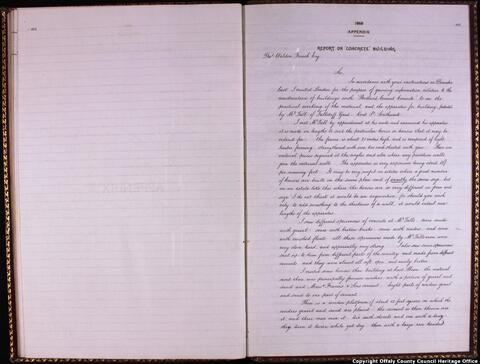 1868
APPENDIX
REPORT ON "CONCRETE" BUILDING
Thos Weldon Trench Esq
Sir,
In accordance with your instructions in December
last I visited London for the purpose of gaining information relative to the
construction of buildings with Portland Cement Concrete to see the
practical working of the material, and the apparatus for building, patented
by Mr Tall of Falstaff Yard, Kent St. Southwark.
I met Mr Tall by appointment at his and examined his apparatus
it is made in lengths to suit the particular house or houses that it may be
ordered for. The frame is about 18 inches high and is composed of light
timber framing, strengthened with iron and with you. This in
material pieces required at the angles and also where any partition walls
join the external walls. The apparatus is very expensive being about 10/
per running foot. It may be very useful on estate where a great number
of houses are built on the same plan and of exactly the same size, but
on an estate like this where the houses are so very different in plan and
size I do not think it would be an acquisition, for should you wish
only to add something to the thickness of a wall, it would entail new
lengths of the apparatus.
I saw different specimens of concrete at Mr Talls some made
with gravel some with broken bricks some with and some
with crushed all these specimens made by Mr Tall were
very close hard, and apparently very strong. I also saw some specimens
sent up to him from different parts of the country and made from different
cements and they were almost all soft, open and easily broken
I visited some houses then building at East Sheen the material
used there was principally furnace with a portion of gravel and
sand and Messrs Francis & Sons cement eight parts of gravel
and sand to one part of cement.
There is a wooden platform of about 12 feet square on which the
gravel and sand are placed the cement is then thrown on
it, and three men mix it two with shovels and one with a
they turn it twice while yet dry then with a large
Copyright Offaly County Council Heritage Office